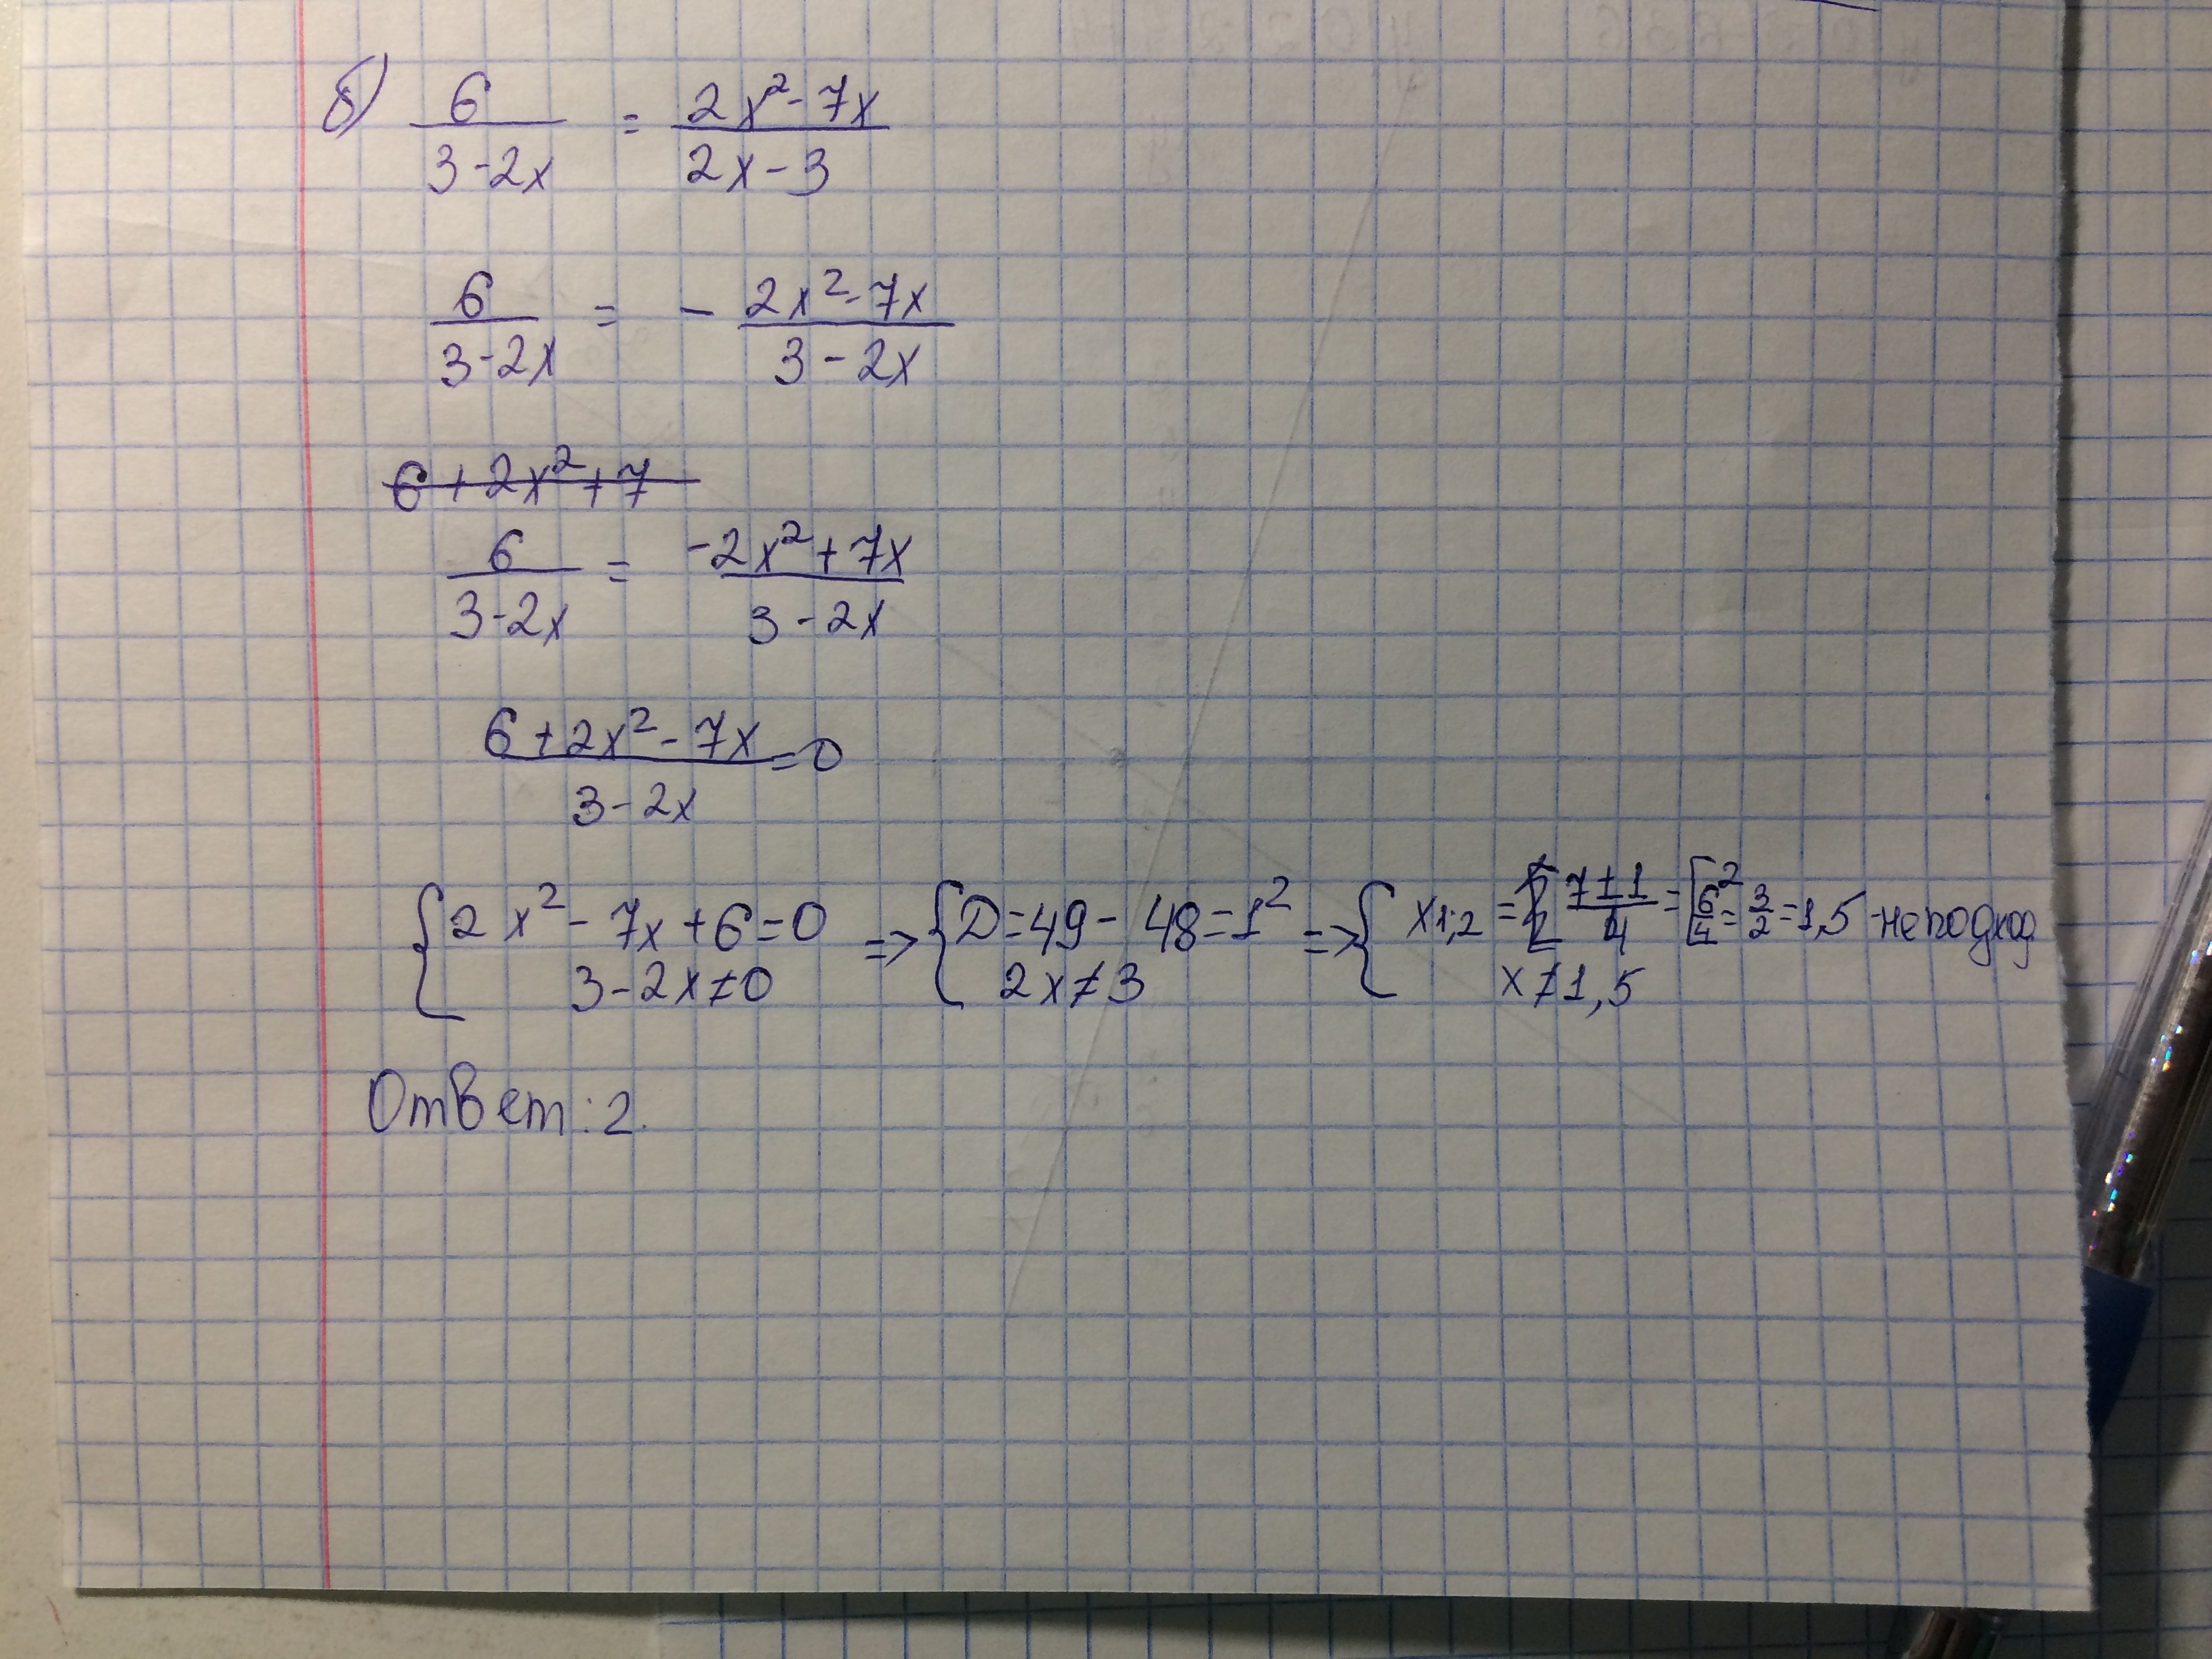 б) 6/(3-2x) = (2x²-7x)/(2x-3)
6/(3-2x) = - (2x²-7x)/(3-2x)
6+2x²+7
6/(3-2x) = (-2x²+7x)/(3-2x)
(6+2x²-7x)/(3-2x) = 0
{2x²-7x+6=0 => {D=49-48=1² => {x1;2 = (7±1)/4 = [2
3-2x≠0 2x≠3 x≠1,5 6/4=3/2=1,5-не подход
Ответ: 2.